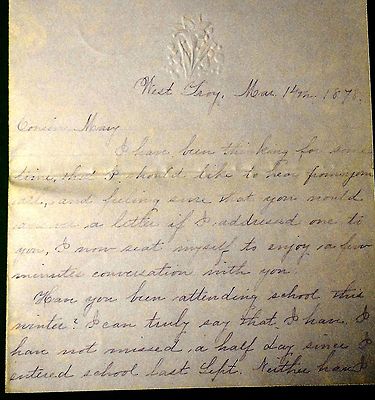 West Troy, Mar. 14th 1878.
Cousin Mary
I have been thinking for some
time, that I should like to hear from you
all, and feeling sure that you would
a letter if I addressed one to
you, I now seat myself to enjoy a few
minutes conversation with you.
Have you been attending school this
winter? I can truly say that I have. I
have not missed a half day since I
entered school last Sept. Neither have I